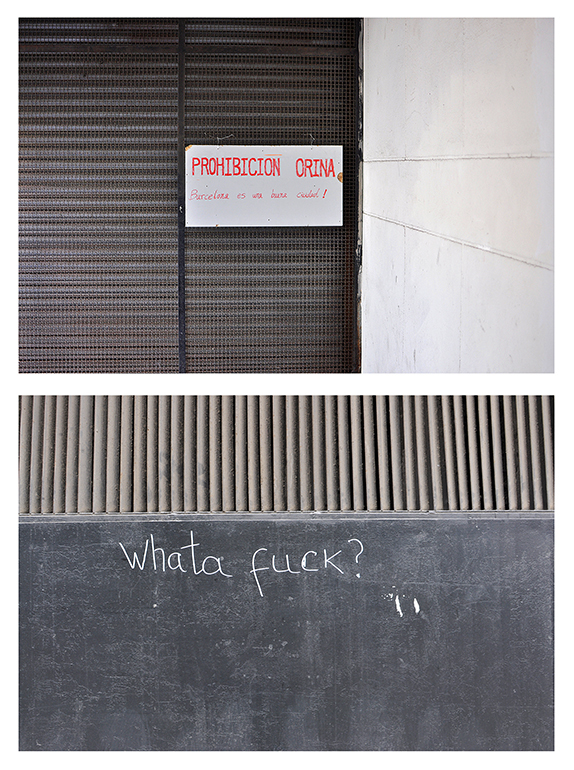 PROHIBICION ORINA
Barcelona es una buna ciudad!
whata fuck?